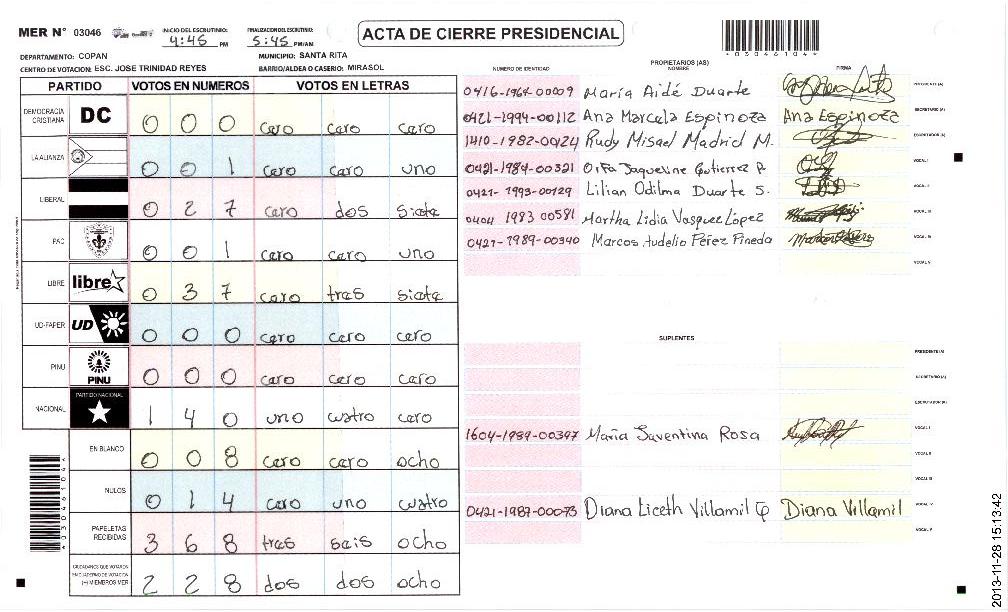 MER N° 03046
INICIO DEL ESCRUTINIO: 4:45 PM
FINALIZACION DEL ESCRUTINIO: 5:45 PM/AM
ACTA DE CIERRE PRESIDENCIAL
*03046104*
DEPARTAMENTO: COPAN
MUNICIPIO: SANTA RITA
CENTRO DE VOTACION: ESC. JOSE TRINIDAD REYES
BARRIO/ALDEA O CASERIO: MIRASOL
PARTIDO VOTOS EN NUMEROS VOTOS EN LETRAS
DEMOCRACIA CRISTIANA DC 0 0 0 cero cero cero
LA ALIANZA 0 0 1 cero cero uno
LIBERAL 0 2 7 cero dos siete
PAC 0 0 1 cero cero uno
LIBRE libre 0 3 7 cero tres siete
UD-FAPER UD 0 0 0 cero cero cero
PINU PINU 0 0 0 cero cero cero
NACIONAL PARTIDO NACIONAL 1 4 0 uno cuatro cero
EN BLANCO 0 0 8 cero cero ocho
NULOS 0 1 4 cero uno cuatro
PAPELETAS RECIBIDAS 3 6 8 tres seis ocho
CIUDADANOS QUE VOTARON EN CUADERNO DE VOTACION (+) MIEMBROS MER 2 2 8 dos dos ocho
*03046104*
PROPIETARIOS (AS)
NUMERO DE IDENTIDAD NOMBRE FIRMA
0416-1964-00009 María Aidé Duarte PRESIDENTE (A)
0421-1994-00112 Ana Marcela Espinoza Ana Espinoza SECRETARIO (A)
1410-1982-00124 Rudy Misael Madrid M. ESCRUTADOR (A)
0421-1984-00321 Jaqueline Gutierrez P. VOCAL I
0421-1993-00129 Lilian Odilma Duarte S. VOCAL II
0404 1983 00581 Martha Lidia Vasquez López VOCAL III
0421-1989-00340 Marcos Audelio Pérez Pineda VOCAL IV
VOCAL V
SUPLENTES
PRESIDENTE (A)
SECRETARIO (A)
ESCRUTADOR (A)
1604-1989-00397 Maria Juventina Rosa VOCAL I
VOCAL II
VOCAL III
0421-1987-00073 Diana Liceth Villamil Diana Villamil VOCAL IV
VOCAL V
2013-11-28 15:13:42